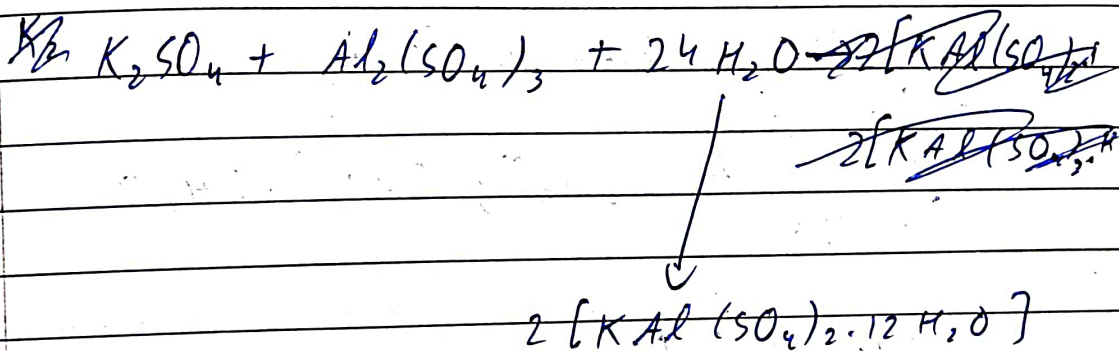 K₂SO₄ + Al₂(SO₄)₃ + 24 H₂O
2 [KAl(SO₄)₂·12 H₂O]